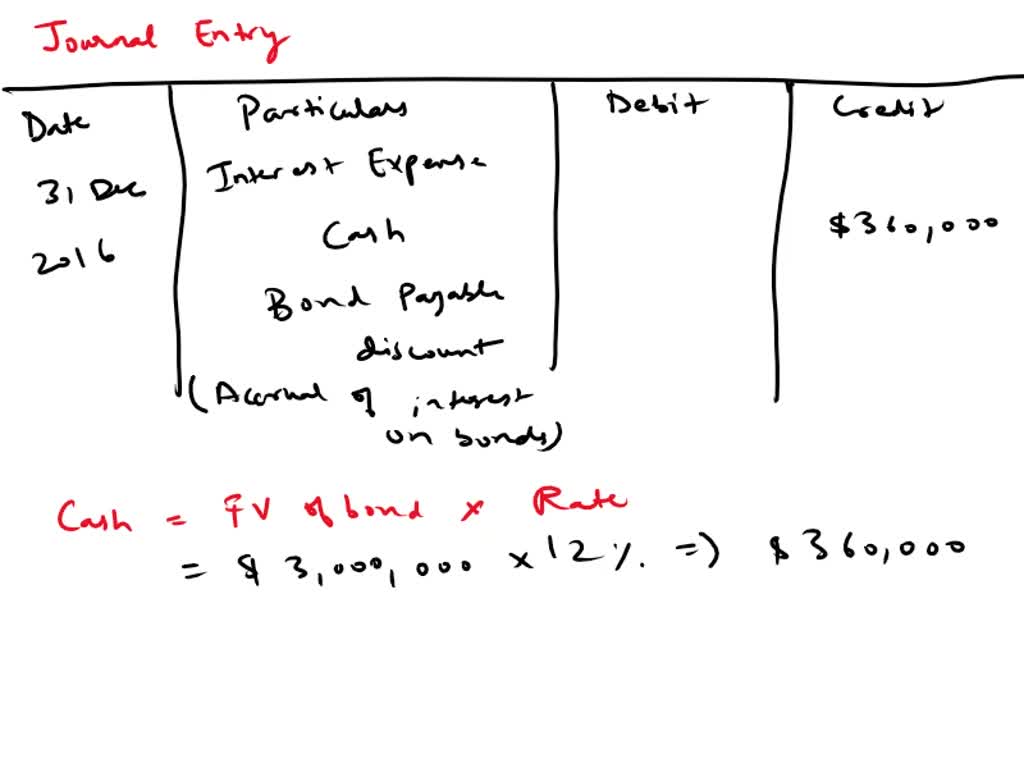 Journal Entry
Date Particulars Debit Credit
31 Dec Interest Expense
2016 Cash $360,000
Bond Payable
discount
(Accrual of interest
on bonds)
Cash = FV of bond x Rate
= $ 3,000,000 x 12% => $360,000